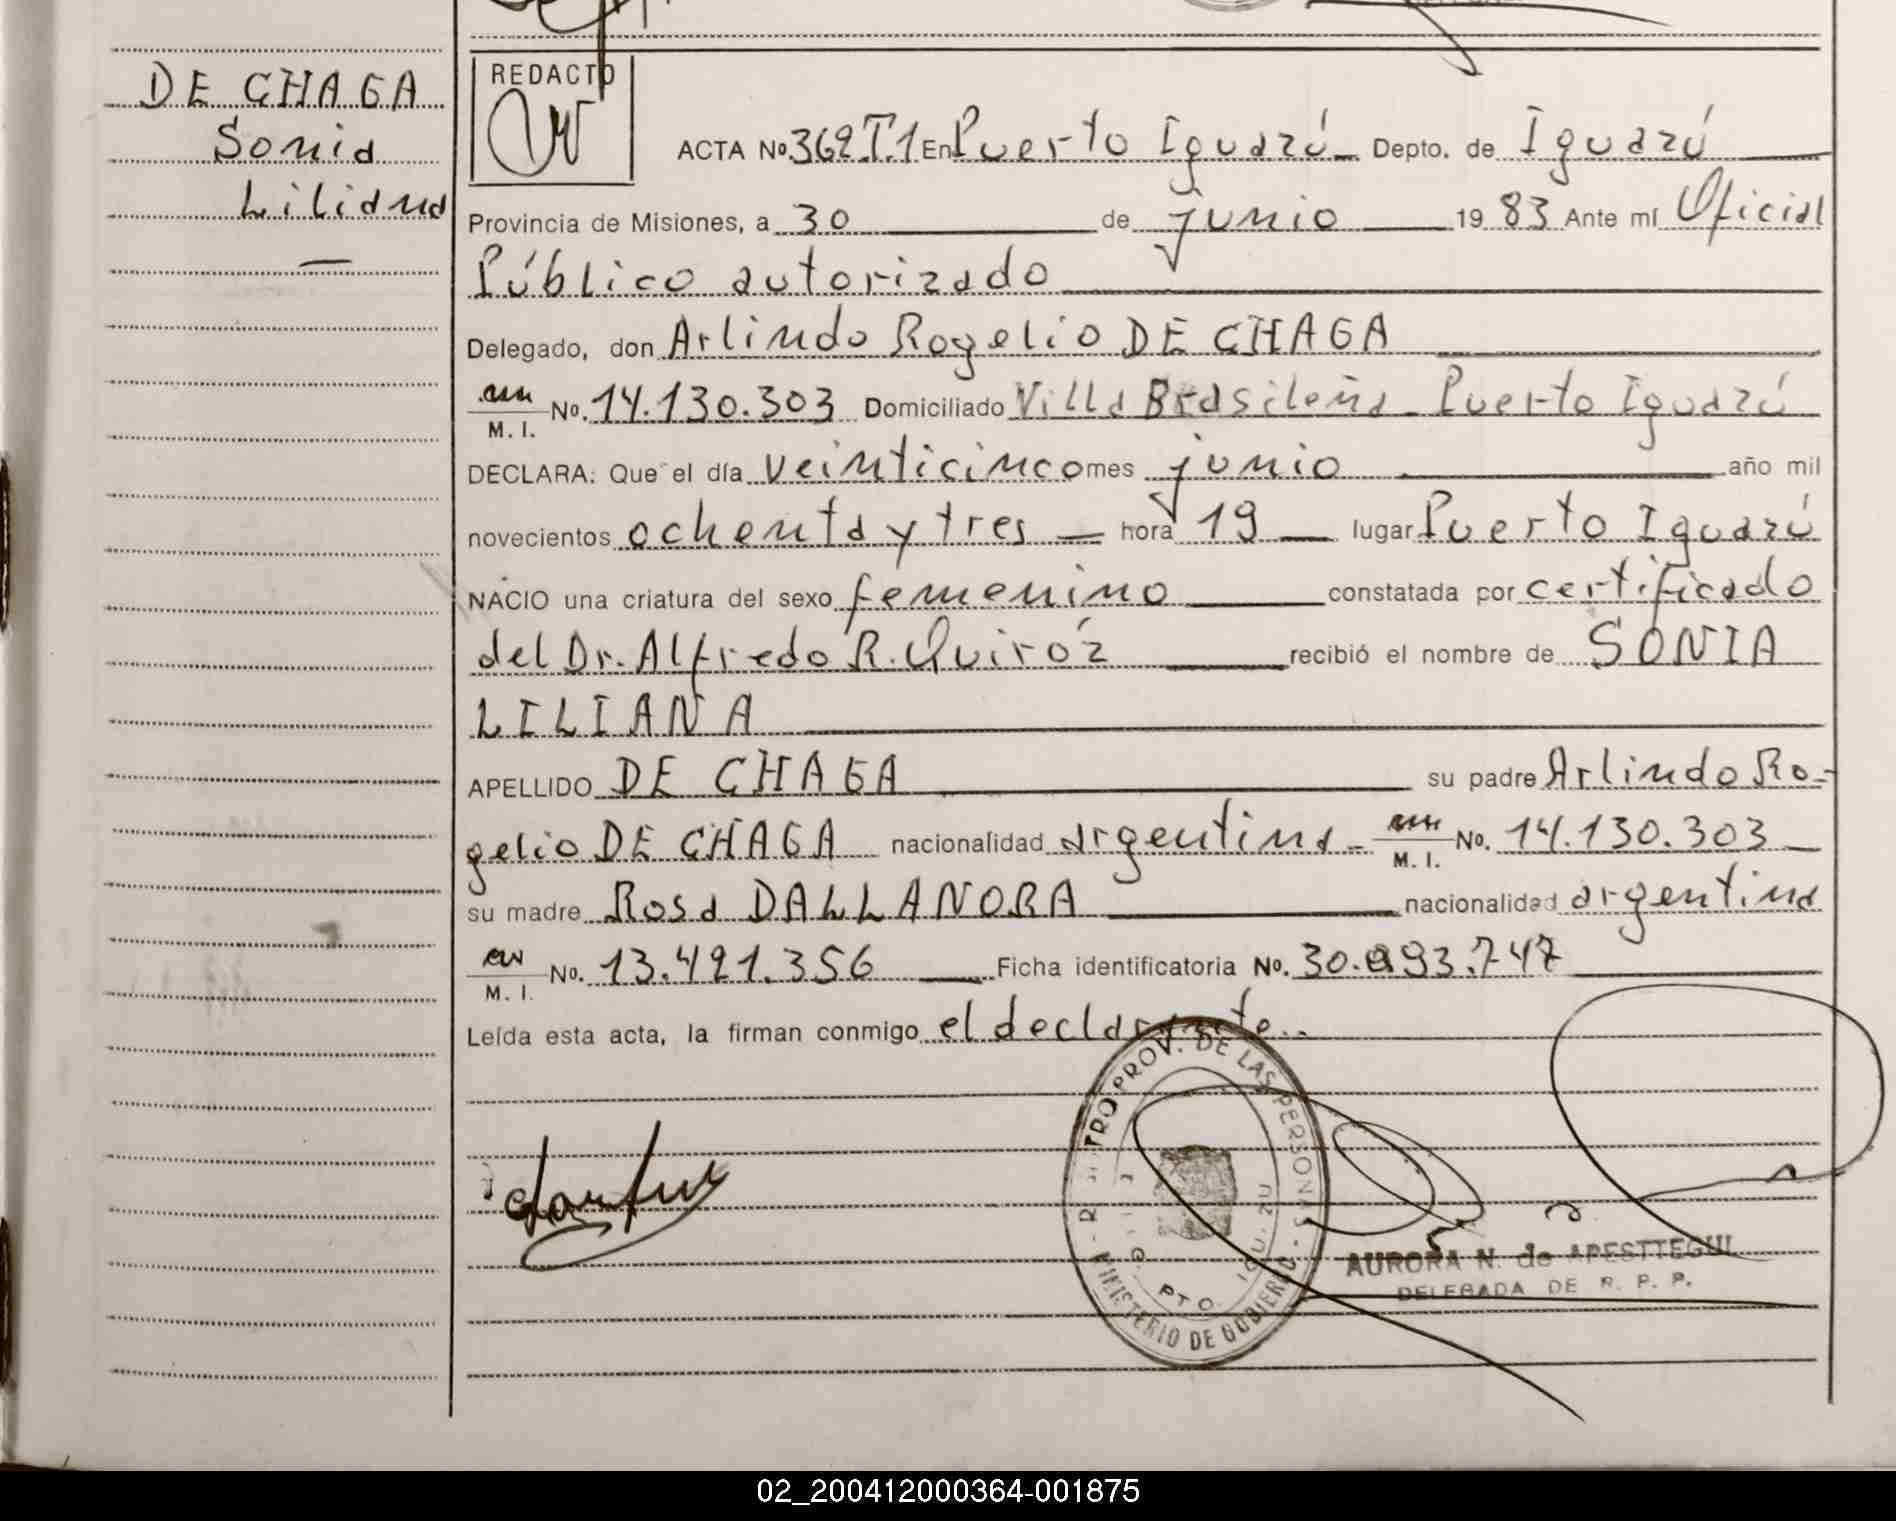 DE CHAGA
Sonia
Liliana
REDACTO
ACTA No 362 T.1 En Puerto Iguazú Depto. de Iguazú
Provincia de Misiones, a 30 de junio 1983 Ante mí Oficial
Público autorizado
Delegado, don Arlindo Rogelio DE CHAGA
M. I. No. 14.130.303 Domiciliado Villa Brasileña - Puerto Iguazú
DECLARA: Que el día veinticinco mes junio año mil
novecientos ochenta y tres hora 19 lugar Puerto Iguazú
NACIO una criatura del sexo femenino constatada por certificado
del Dr. Alfredo R. Quiróz recibió el nombre de SONIA
LILIANA
APELLIDO DE CHAGA su padre Arlindo Ro-
gelio DE CHAGA nacionalidad argentina - M. I. No. 14.130.303
su madre Rosa DALLANORA nacionalidad argentina
M. I. No. 13.491.356 Ficha identificatoria No. 30.293.747
Leída esta acta, la firman conmigo el declarante..
REGISTRO PROV. DE LAS PERSONAS - MINISTERIO DE GOBIERNO
PTO. IGUAZU
AURORA N. de APESTTEGUI
DELEGADA DE R. P. P.
02_200412000364-001875